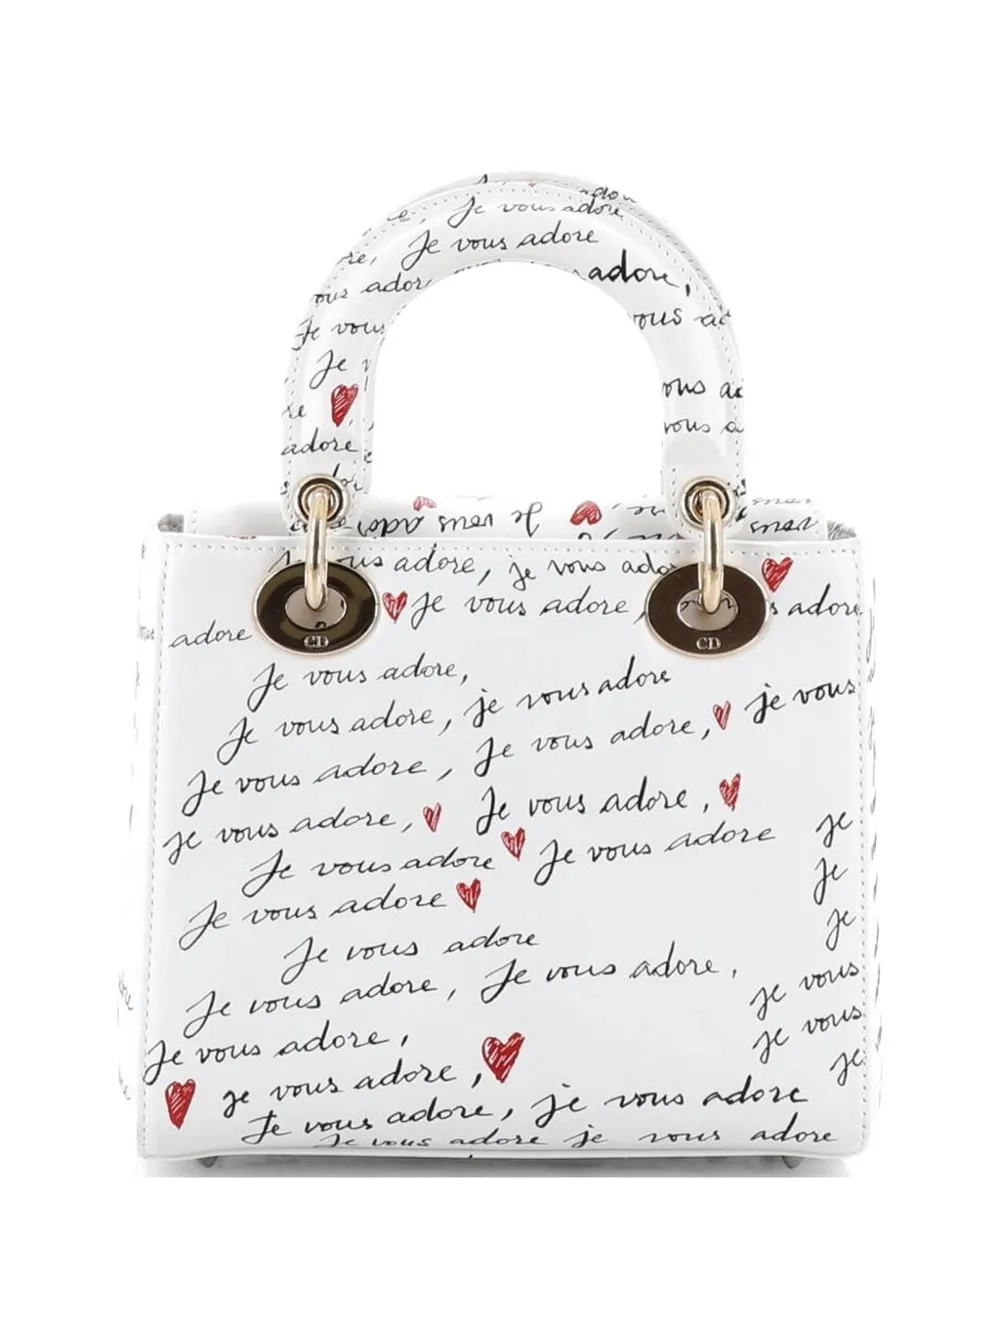 Je vous adore
Je vous adore
adore,
adore
Je vous
Je
adore
vous adore, je vous
Je vous adore
CD
CD
adore
Je vous adore,
Je vous adore, je vous adore
Je vous adore, Je vous adore, je vous
Je vous adore, Je vous adore,
Je vous adore Je vous adore je
Je vous adore je
Je vous adore je
Je vous adore, Je vous adore, je vous
Je vous adore, je vous
je vous adore, je
Je vous adore, je vous adore
Je vous adore je vous adore